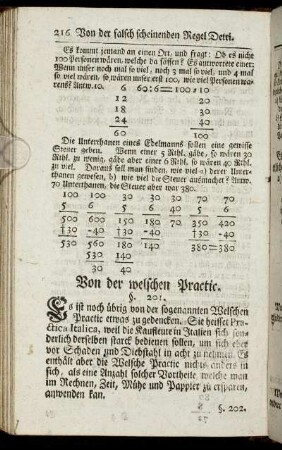 216 Von der falsch scheinenden Regel Detri.
Es kommt jemand an einen Ort, und fragt: Ob es nicht
100 Personen wären, welche da sässen? Es antwortete einer:
Wenn unser noch mal so viel, noch 3 mal so viel, und 4 mal
so viel wären, so wären unser erst 100, wie viel Personen wa-
rens? Antw. 10. 6 60:6=100:10
12 20
18 30
24 40
60 100
Die Unterthanen eines Edelmanns sollen eine gewisse
Steuer geben. Wenn einer 5 Rthl. gäbe, so wären 30
Rthl. zu wenig, gäbe aber einer 6 Rthl. so wären 40 Rthl.
zu viel. Daraus soll man finden, wie viel a) derer Unter-
thanen gewesen, b) wie viel die Steuer ausmachet? Antw.
70 Unterthanen, die Steuer aber war 380.
100 100 30 30 70 70
5 6 5 6 5 6
500 600 150 180 70 350 420
†30 -40 †30 -40 †30 -40
530 560 180 140 380=380
530 140
30 40
Von der welschen Practic.
§. 201.
Es ist noch übrig von der sogenannten Welschen
Practic etwas zu gedencken. Sie heisset Pra-
ctica Italica, weil die Kaufleute in Italien sich son-
derlich derselben starck bedienen sollen, um sich eher
vor Schaden und Diebstahl in acht zu nehmen. Es
enthält aber die Welsche Practic nichts anders in
sich, als eine Anzahl solcher Vortheile, welche man
im Rechnen, Zeit, Mühe und Pappier zu ersparen,
anwenden kan.
§. 202.